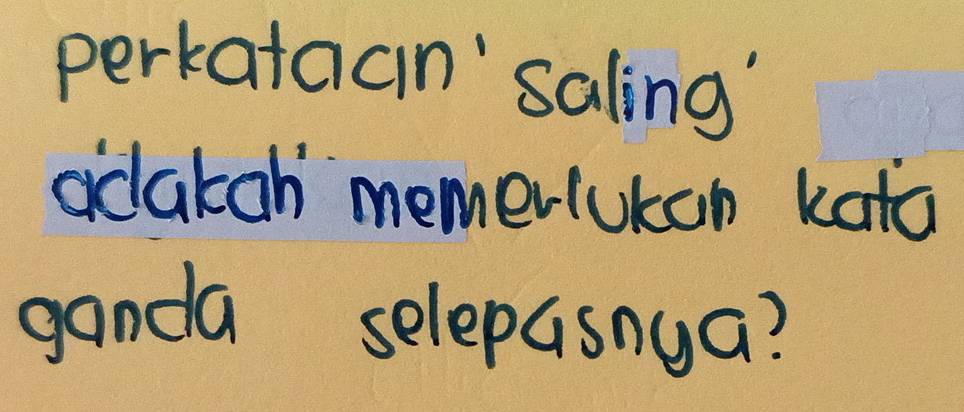 perkataan 'saling'
adakah memerlukan kata
ganda selepasnya?